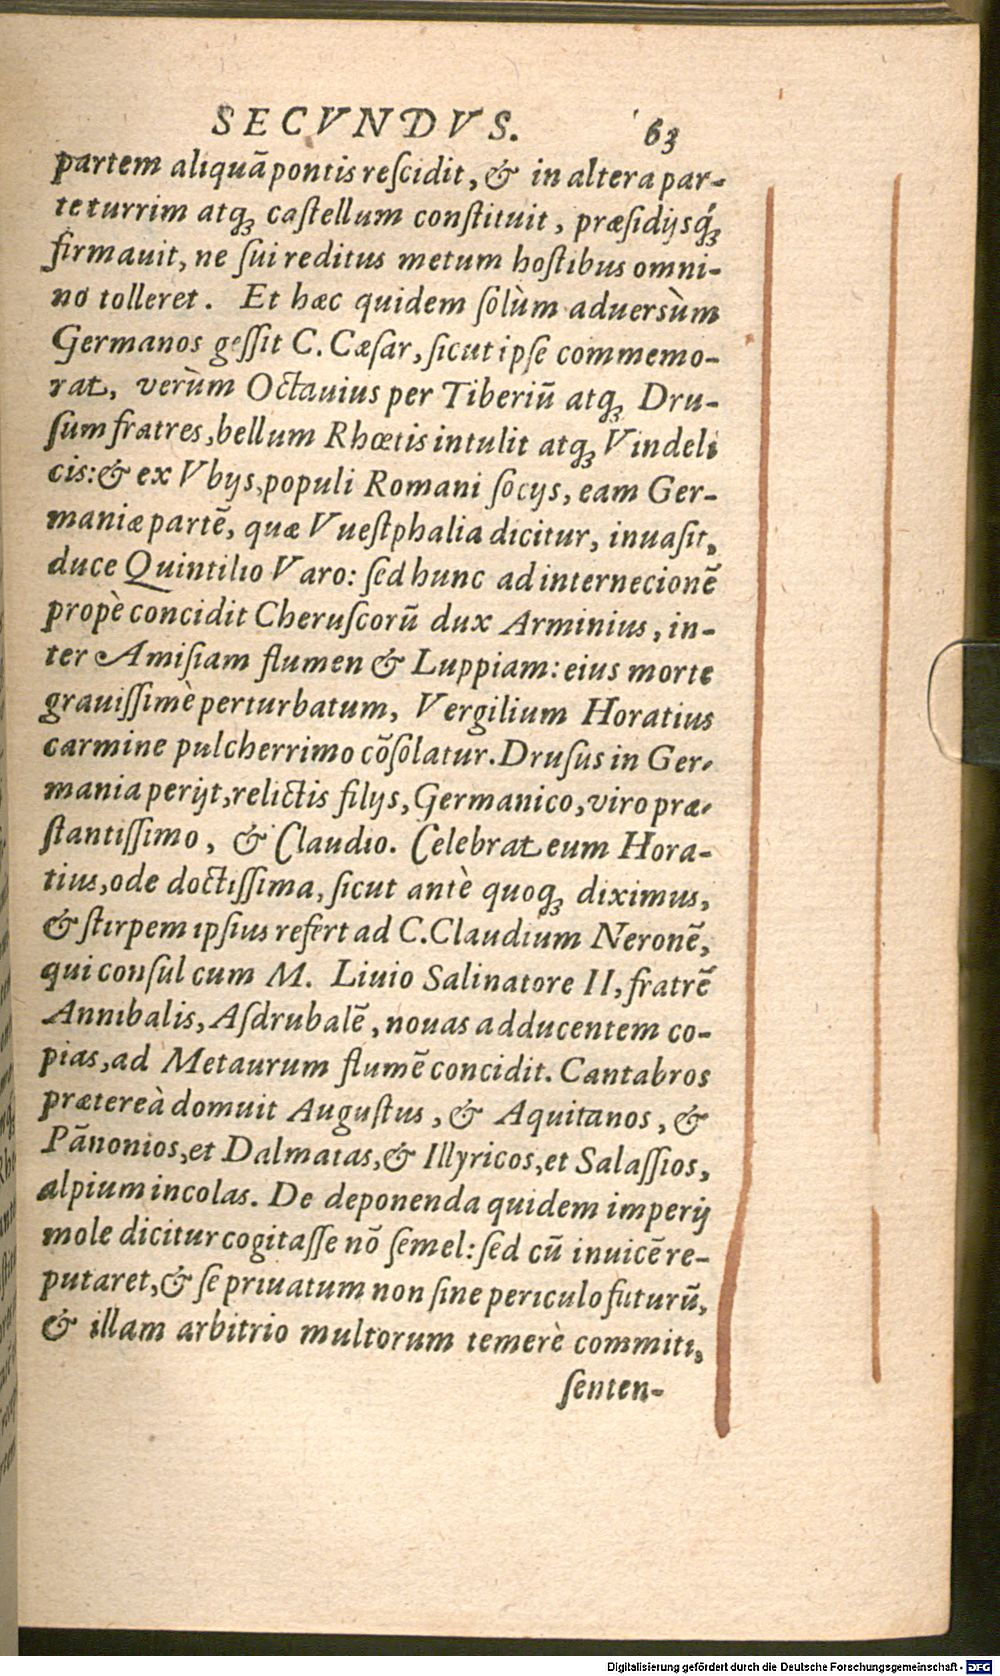 SECVNDVS. 63
partem aliquã pontis reſcidit, & in altera par-
te turrim atqꝫ caſtellum conſtituit, præſidijsq́ꝫ
firmauit, ne ſui reditus metum hoſtibus omni-
no tolleret. Et hæc quidem ſolùm aduersùm
Germanos geſſit C. Cæſar, ſicut ipſe commemo-
rat, verùm Octauius per Tiberiũ atqꝫ Dru-
ſum fratres, bellum Rhœtis intulit atqꝫ Vindeli
cis: & ex Vbijs, populi Romani ſocijs, eam Ger-
maniæ partẽ, quæ Vueſtphalia dicitur, inuaſit,
duce Quintilio Varo: ſed hunc ad internecionẽ
propè concidit Cheruſcorũ dux Arminius, in-
ter Amiſiam flumen & Luppiam: eius morte
grauiſſimè perturbatum, Vergilium Horatius
carmine pulcherrimo cõſolatur. Druſus in Ger-
mania perijt, relictis filijs, Germanico, viro præ-
ſtantiſſimo, & Claudio. Celebrat eum Hora-
tius, ode doctiſſima, ſicut antè quoqꝫ diximus,
& ſtirpem ipſius refert ad C. Claudium Neronẽ,
qui conſul cum M. Liuio Salinatore II, fratrẽ
Annibalis, Aſdrubalẽ, nouas adducentem co-
pias, ad Metaurum flumẽ concidit. Cantabros
prætereà domuit Auguſtus, & Aquitanos, &
Pãnonios, et Dalmatas, & Illyricos, et Salaſſios,
alpium incolas. De deponenda quidem imperij
mole dicitur cogitaſſe nõ ſemel: ſed cũ inuicẽ re-
putaret, & ſe priuatum non ſine periculo futurũ,
& illam arbitrio multorum temerè committi,
ſenten-
Digitalisierung gefördert durch die Deutsche Forschungsgemeinschaft - DFG